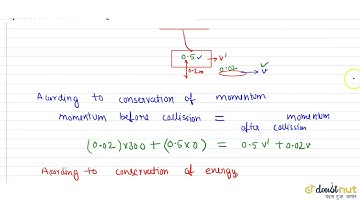 0.5
v'
0.2m
0.02
v
According to conservation of momentum
momentum before collision = momentum
after collision
(0.02)×300 + (0.5×0) = 0.5 v' + 0.02v
According to conservation of energy
doubtnut